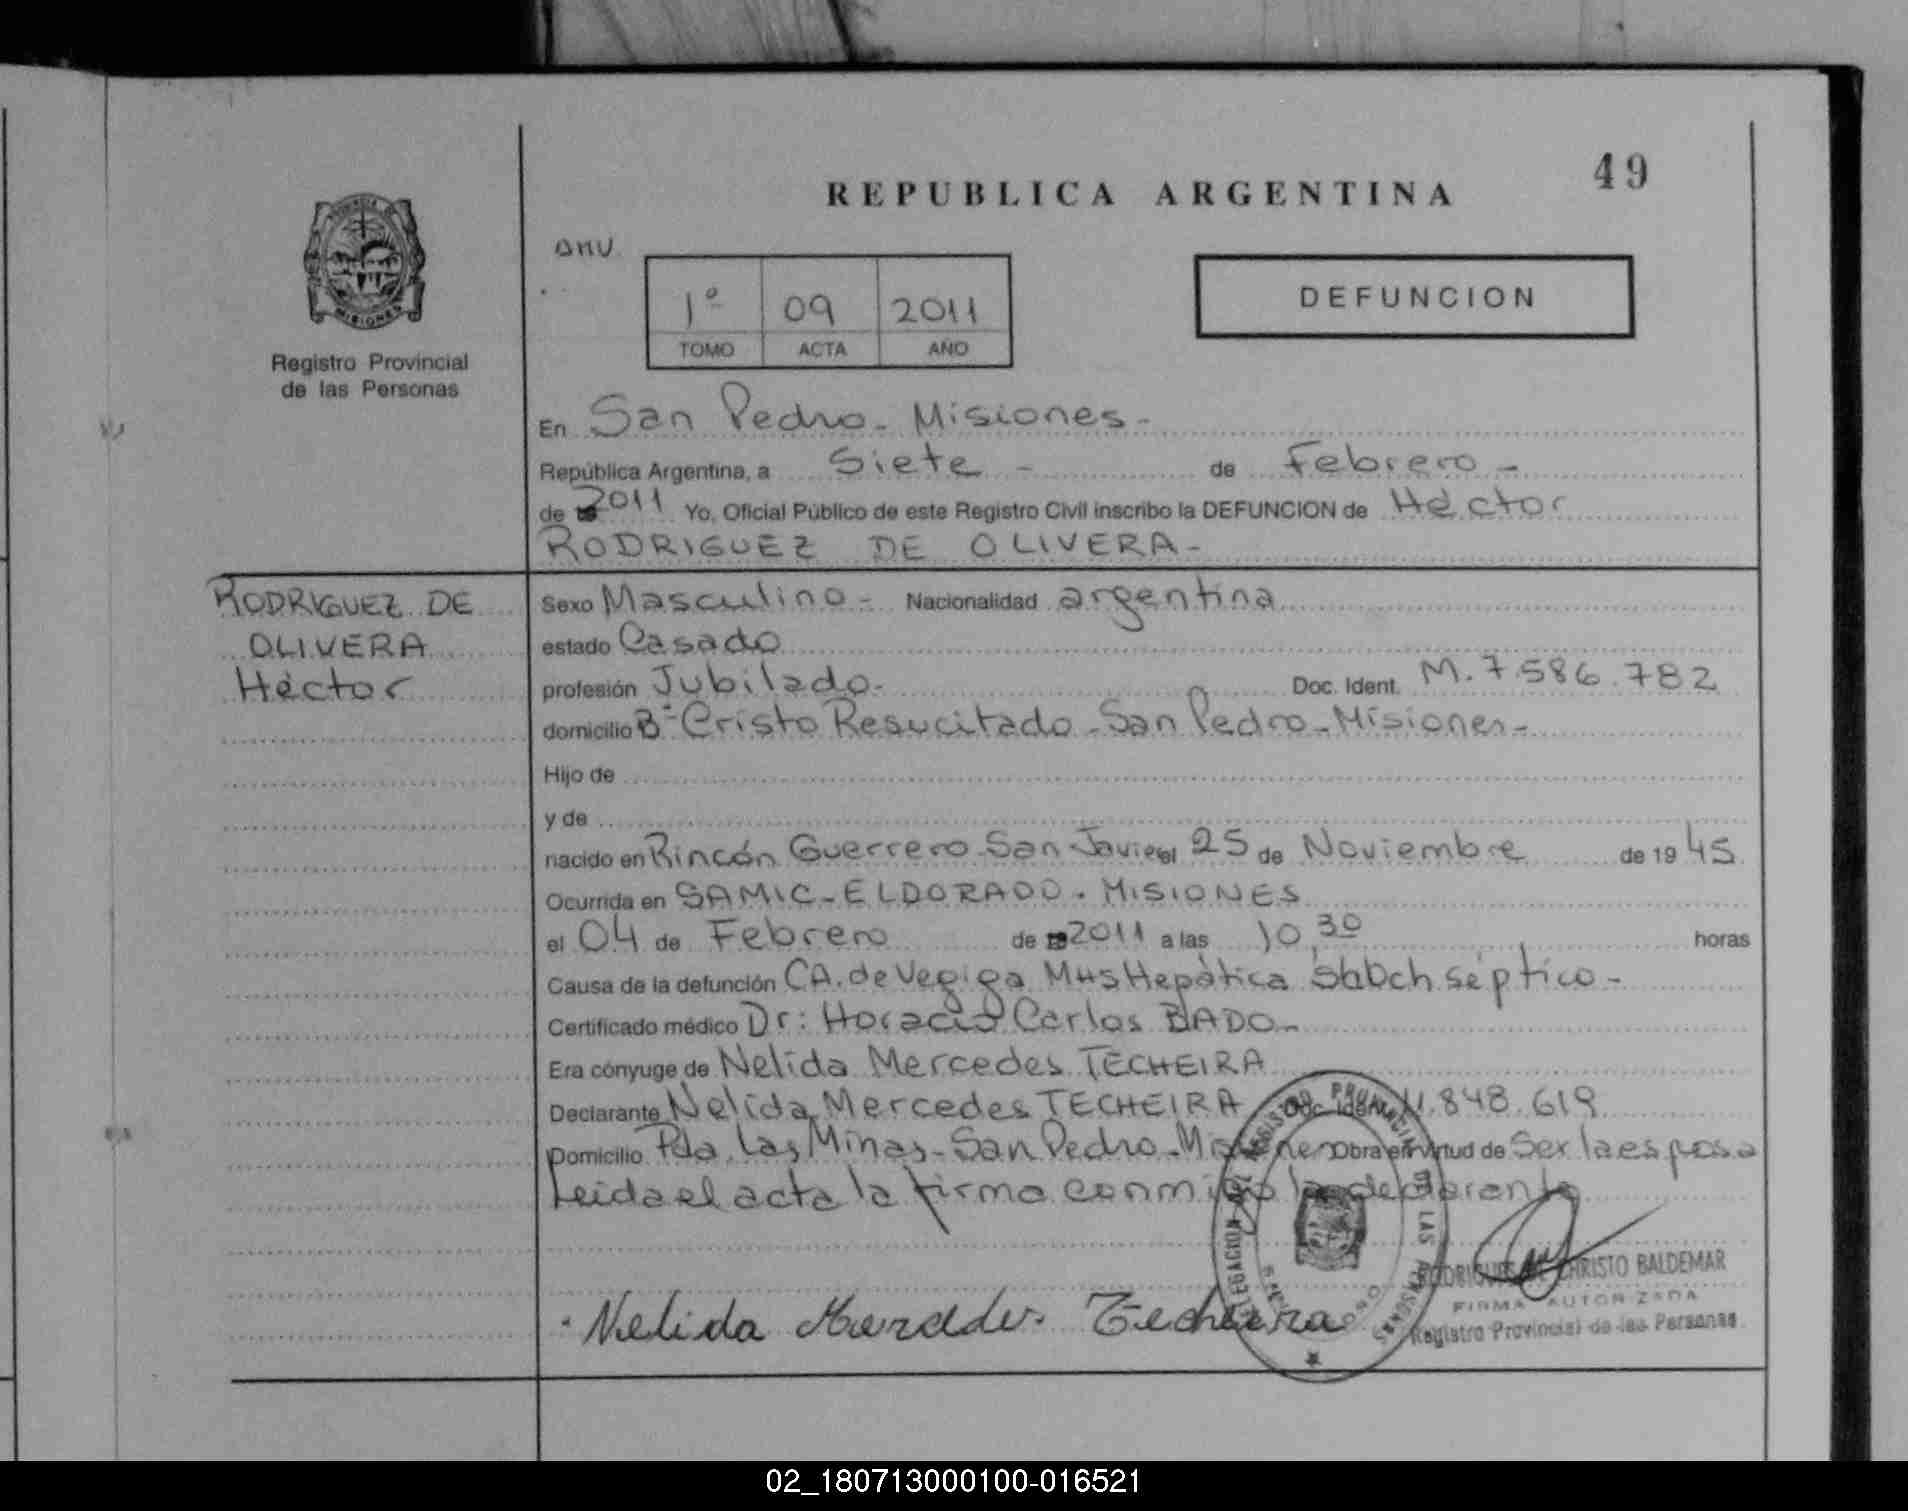 49
REPUBLICA ARGENTINA
PROVINCIA DE
MISIONES
Registro Provincial
de las Personas
1º 09 2011
TOMO ACTA AÑO
DEFUNCION
En San Pedro - Misiones -
República Argentina, a Siete - de Febrero -
de 2011 Yo, Oficial Público de este Registro Civil inscribo la DEFUNCION de Héctor
RODRIGUEZ DE OLIVERA -
RODRIGUEZ DE
OLIVERA
Héctor
Sexo Masculino - Nacionalidad argentina
estado Casado
profesión Jubilado - Doc. Ident. M. 7.586.782
domicilio Bº Cristo Resucitado - San Pedro - Misiones -
Hijo de
y de
nacido en Rincón Guerrero San Javier el 25 de Noviembre de 19 45
Ocurrida en SAMIC - ELDORADO - MISIONES
el 04 de Febrero de 2011 a las 10,30 horas
Causa de la defunción CA. de Vegiga Hepática séptico -
Certificado médico Dr: Horacio Carlos BADO -
Era cónyuge de Nelida Mercedes TECHEIRA
Declarante Nelida Mercedes TECHEIRA Doc. Ident. 11.848.619
Domicilio Pda. Las Minas - San Pedro - Misiones Obra en virtud de Ser la esposa
Leida el acta la firma conmigo la declarante
Nelida Mercedes Techeira
REGISTRO PROVINCIAL DE LAS PERSONAS
DELEGACION
CHRISTO BALDEMAR
FIRMA AUTORIZADA
Registro Provincial de las Personas
02_180713000100-016521